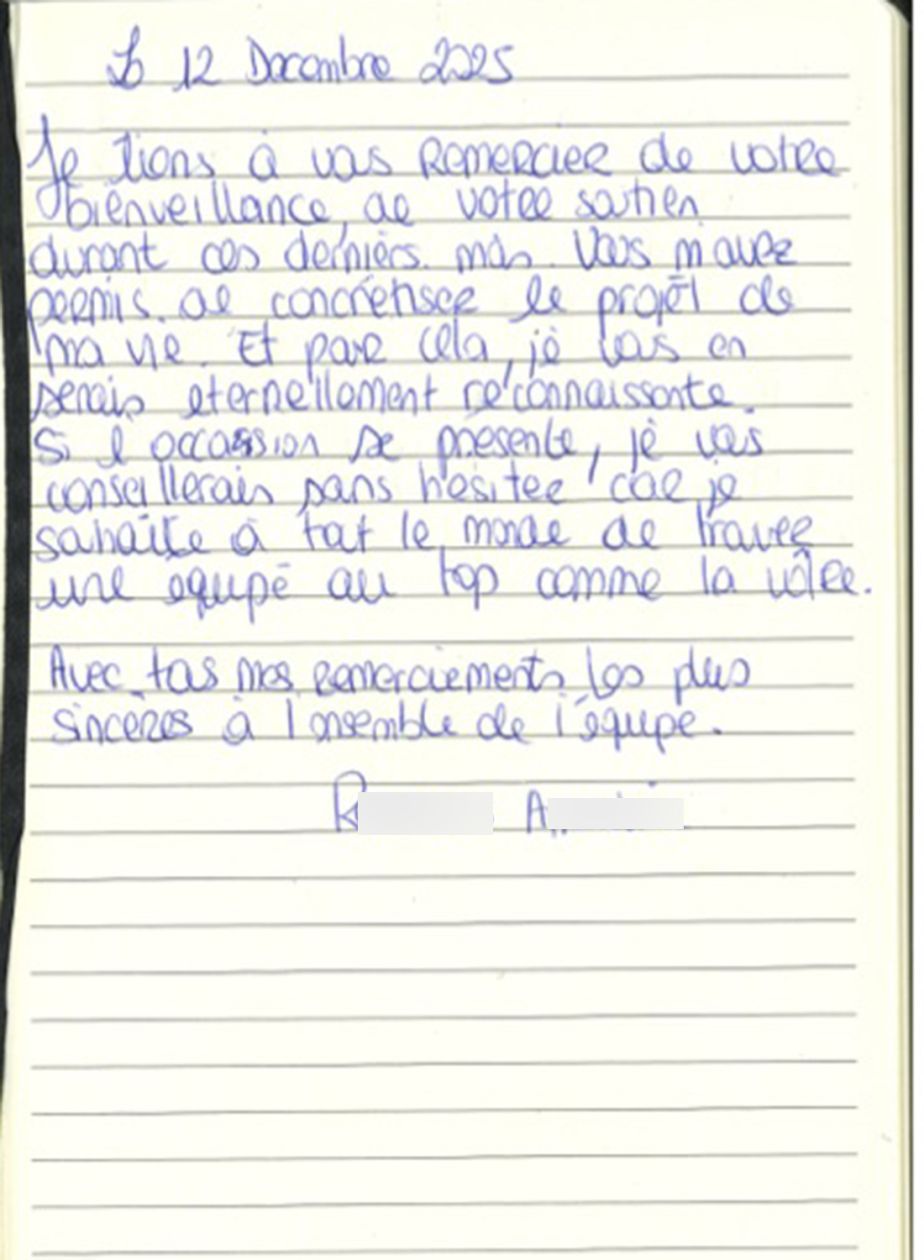 Le 12 Décembre 2025
Je tiens à vous remercier de votre
bienveillance, de votre soutien
durant ces derniers mois. Vous m'avez
permis de concrétiser le projet de
ma vie. Et pour cela, je vous en
serais éternellement reconnaissante.
Si l'occassion se présente, je vous
conseillerais sans hésiter car je
souhaite à tout le monde de trouver
une équipe au top comme la vôtre.
Avec tous mes remerciements les plus
sincères à l'ensemble de l'équipe.